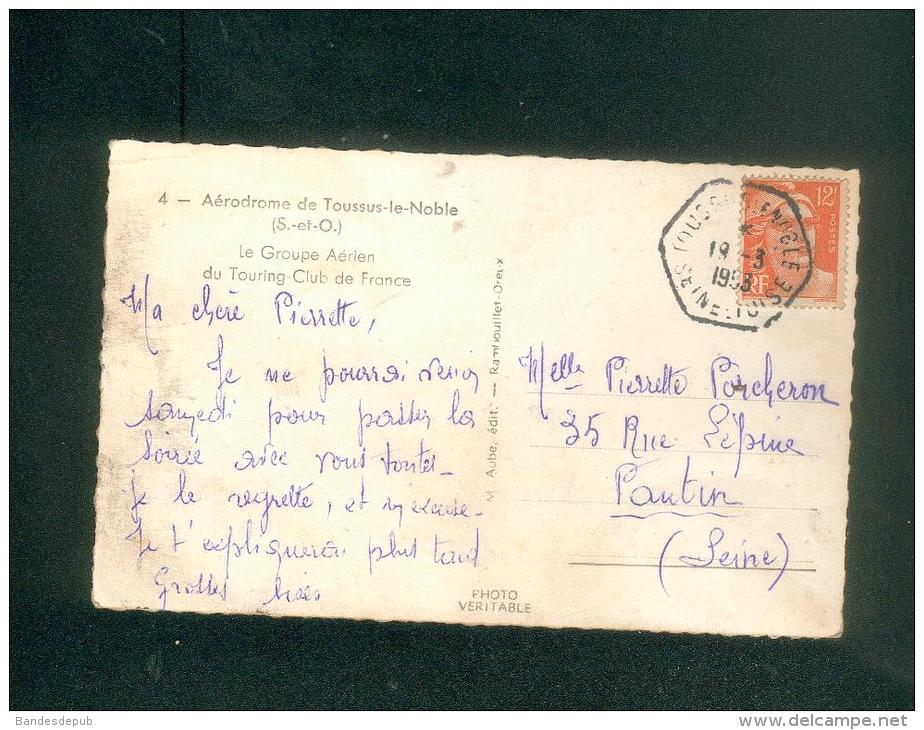 4 — Aérodrome de Toussus-le-Noble
(S.-et-O.)
Le Groupe Aérien
du Touring-Club de France
Ma chère Pierrette,
Je ne pourrai venir
samedi pour passer la
soirée avec vous toutes.
Je le regrette, et m'excuse.
Je t'expliquerai plus tard
Grosses bises
M. Aubé, édit. — Rambouillet-Dreux
PHOTO
VERITABLE
12F
POSTES
RF
TOUSSUS LE NOBLE
19 -3
1953
SEINE-ET-OISE
Melle Pierrette Porcheron
35 Rue Lépine
Pantin
(Seine)
Bandesdepub
www.delcampe.net